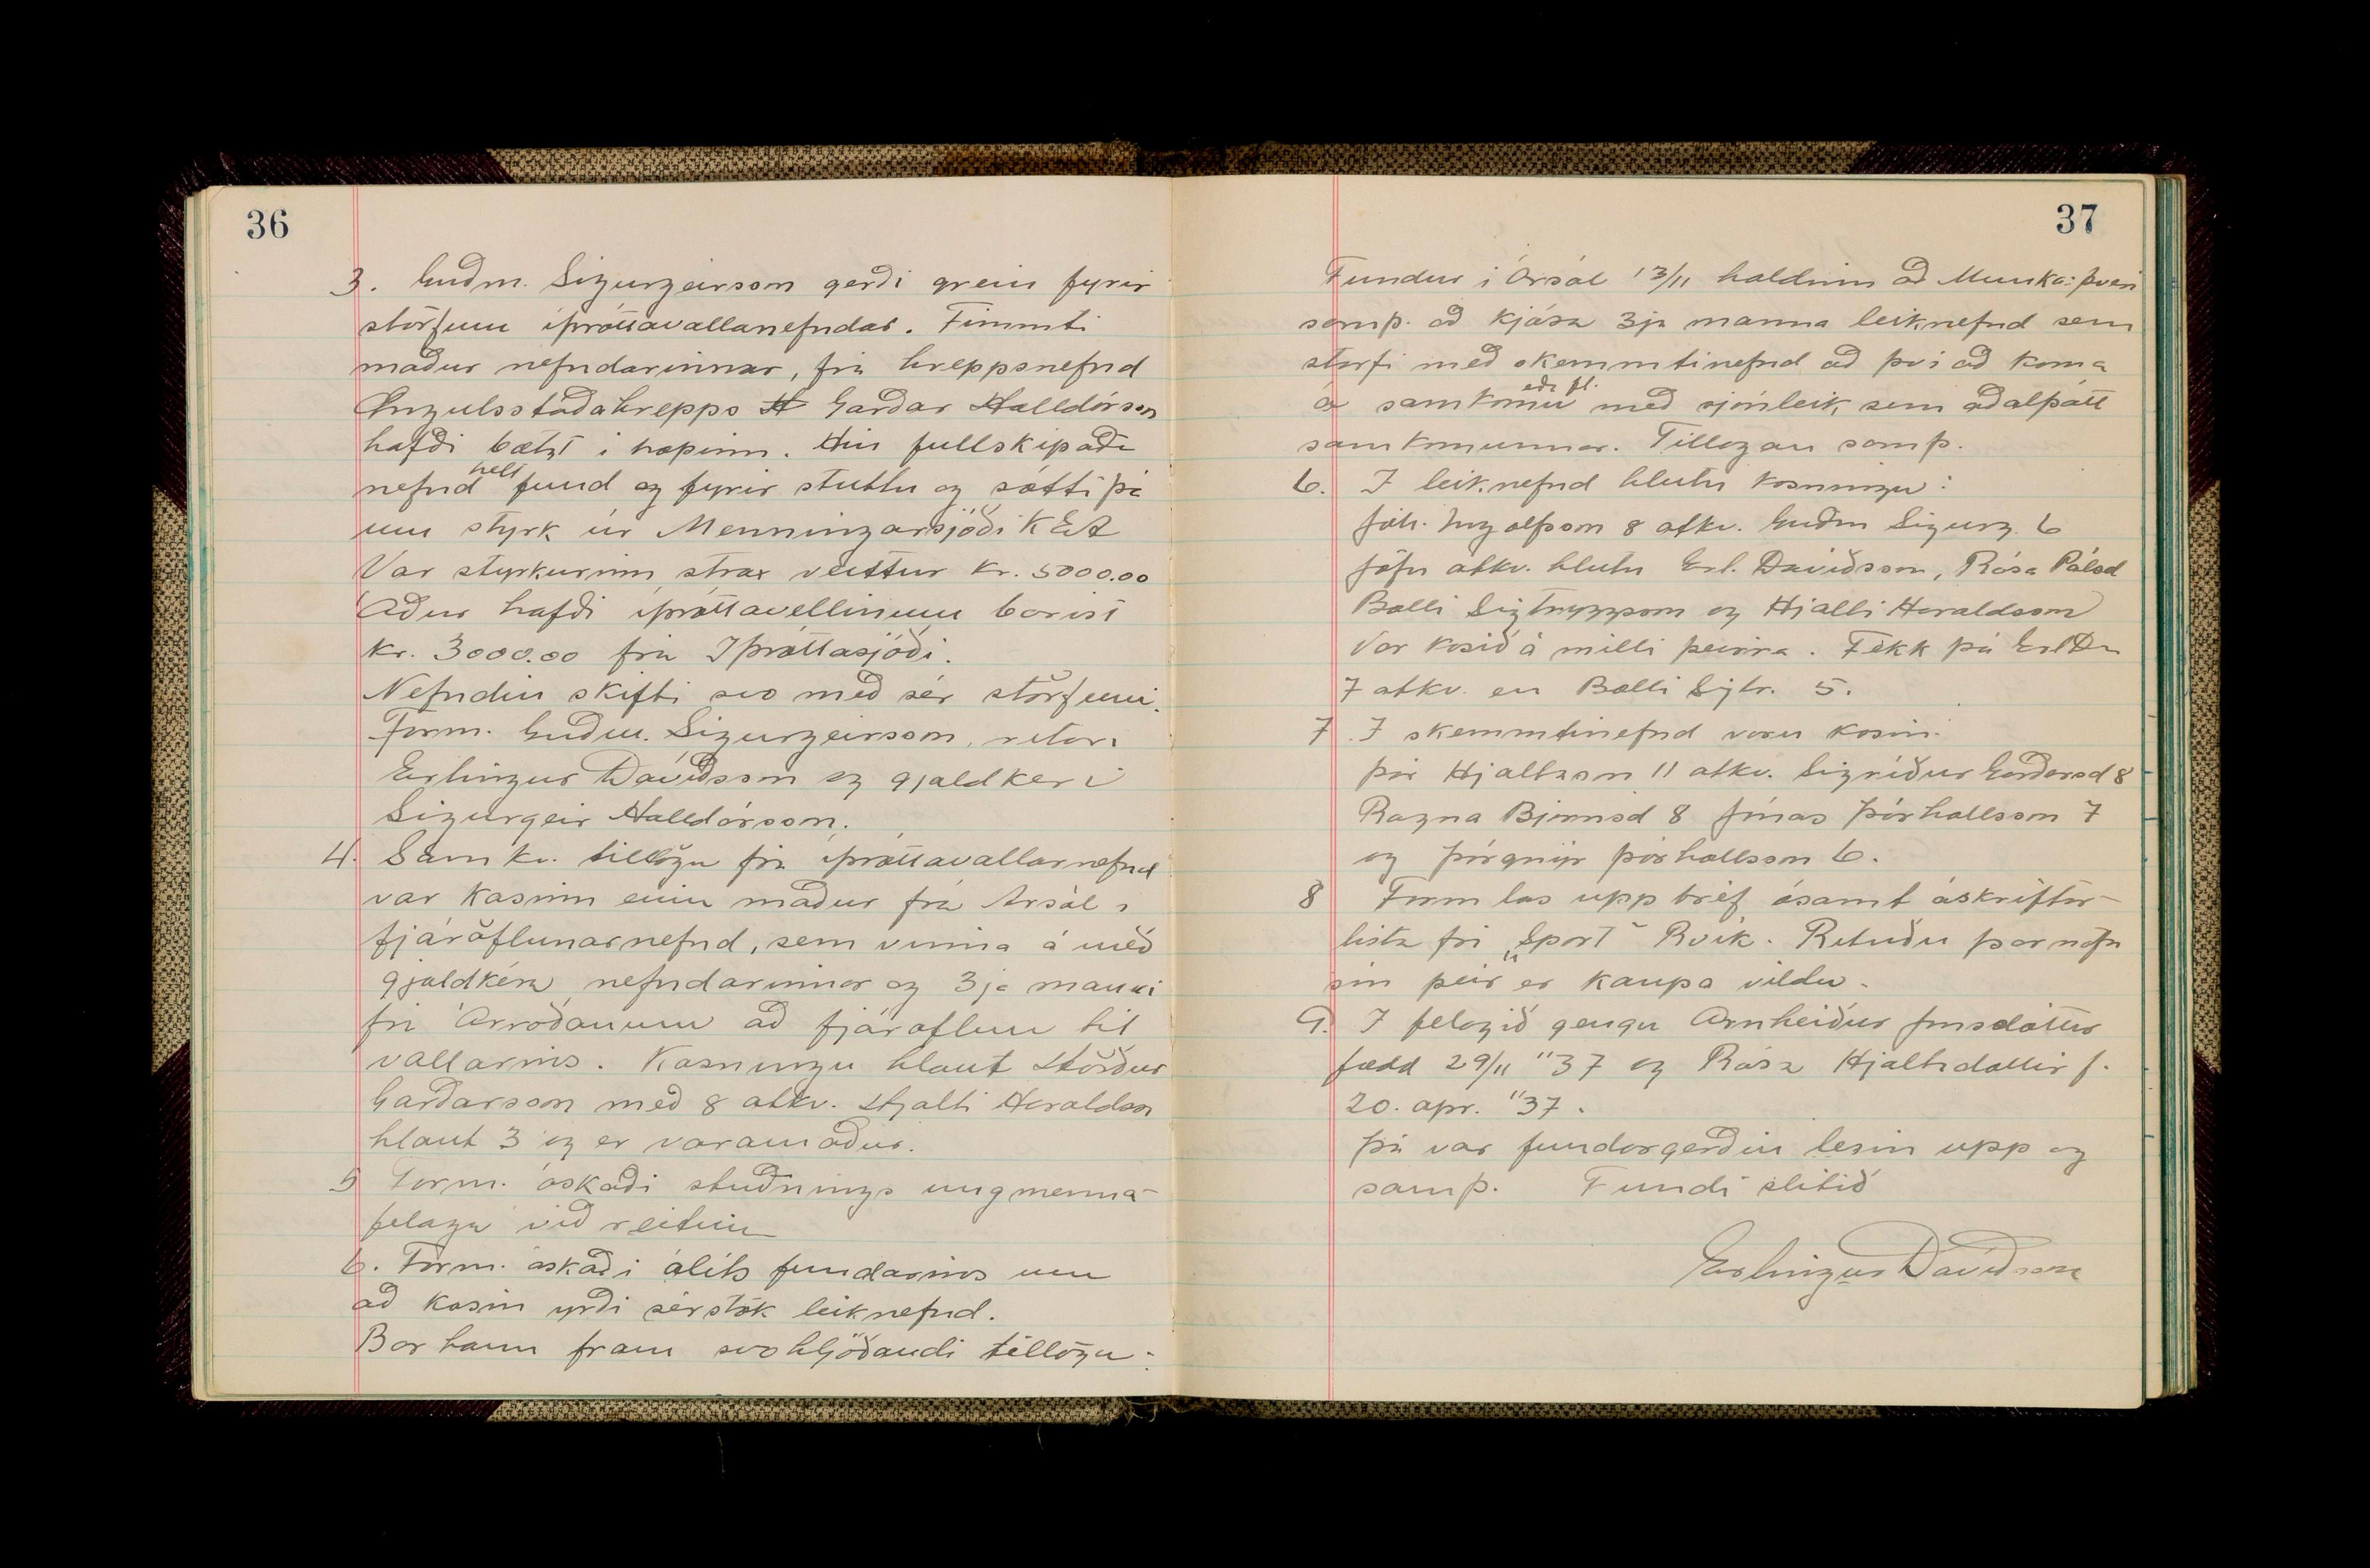 36
3. Guðm. Sigurgeirsson gerði grein fyrir
störfum íþróttavallanefndar. Fimmti
maður nefndarinnar, frá hreppsnefnd
Öngulsstaðahrepps Garðar Halldórsson
hafði bætst í hópinn. Hin fullskipaða
nefnd helt fund og fyrir stuttu og sótti þá
um styrk úr Menningarsjóði KEA
Var styrkurinn strax veittur kr. 5000.00
Áður hafði íþróttavellinum borist
kr. 3000.00 frá Íþróttasjóði.
Nefndin skifti svo með sér störfum.
Form. Guðm. Sigurgeirsson, ritari
Erlingur Davíðsson og gjaldkeri
Sigurgeir Halldórsson.
4. Samkv. tillögu frá íþróttavallarnefnd
var kosinn einn maður frá Ársól í
fjáröflunarnefnd, sem vinna á með
gjaldkera nefndarinnar og 3ja manni
frá Árroðanum að fjáröflun til
vallarins. Kosningu hlaut Hörður
Garðarsson með 8 atkv. Hjalti Haraldsson
hlaut 3 og er varamaður.
5 Form. óskaði stuðnings ungmenna-
felaga við reitinn
6. Form. óskaði álits fundarins um
að kosin yrði sérstök leiknefnd.
Bar hann fram svohljóðandi tillögu:
37
Fundur í Ársól 13/11 haldinn að Munkaþverá
samþ. að kjósa 3ja manna leiknefnd sem
starfi með skemmtinefnd að því að koma
á samkomu eða fl. með sjónleik sem aðalþátt
samkomunnar. Tillagan samþ.
6. Í leiknefnd hlutu kosningu:
Jóh. Ingólfsson 8 atkv. Guðm Sigurg. 6
Jöfn atkv. hlutu Erl. Davíðsson, Rósa Pálsd
Balli Sigtryggsson og Hjalti Haraldsson
Var kosið á milli þeirra. Fekk þá Erl Da
7 atkv. en Balli Sigtr. 5.
7. Í skemmtinefnd voru kosin:
Þór Hjaltason 11 atkv. Sigríður Garðarsd 8
Ragna Björnsd 8 Jónas Þórhallsson 7
og Þórgnýr Þórhallsson 6.
8 Form las upp bréf ásamt áskriftar-
lista frá „Sport" Rvík. Rituðu þar nöfn
sín þeir er kaupa vildu.
9. Í felagið gengu Arnheiður Jónsdóttir
fædd 29/11 "37 og Rósa Hjaltadóttir f.
20. apr. "37.
Þá var fundargerðin lesin upp og
samþ. Fundi slitið
Erlingur Davíðsson